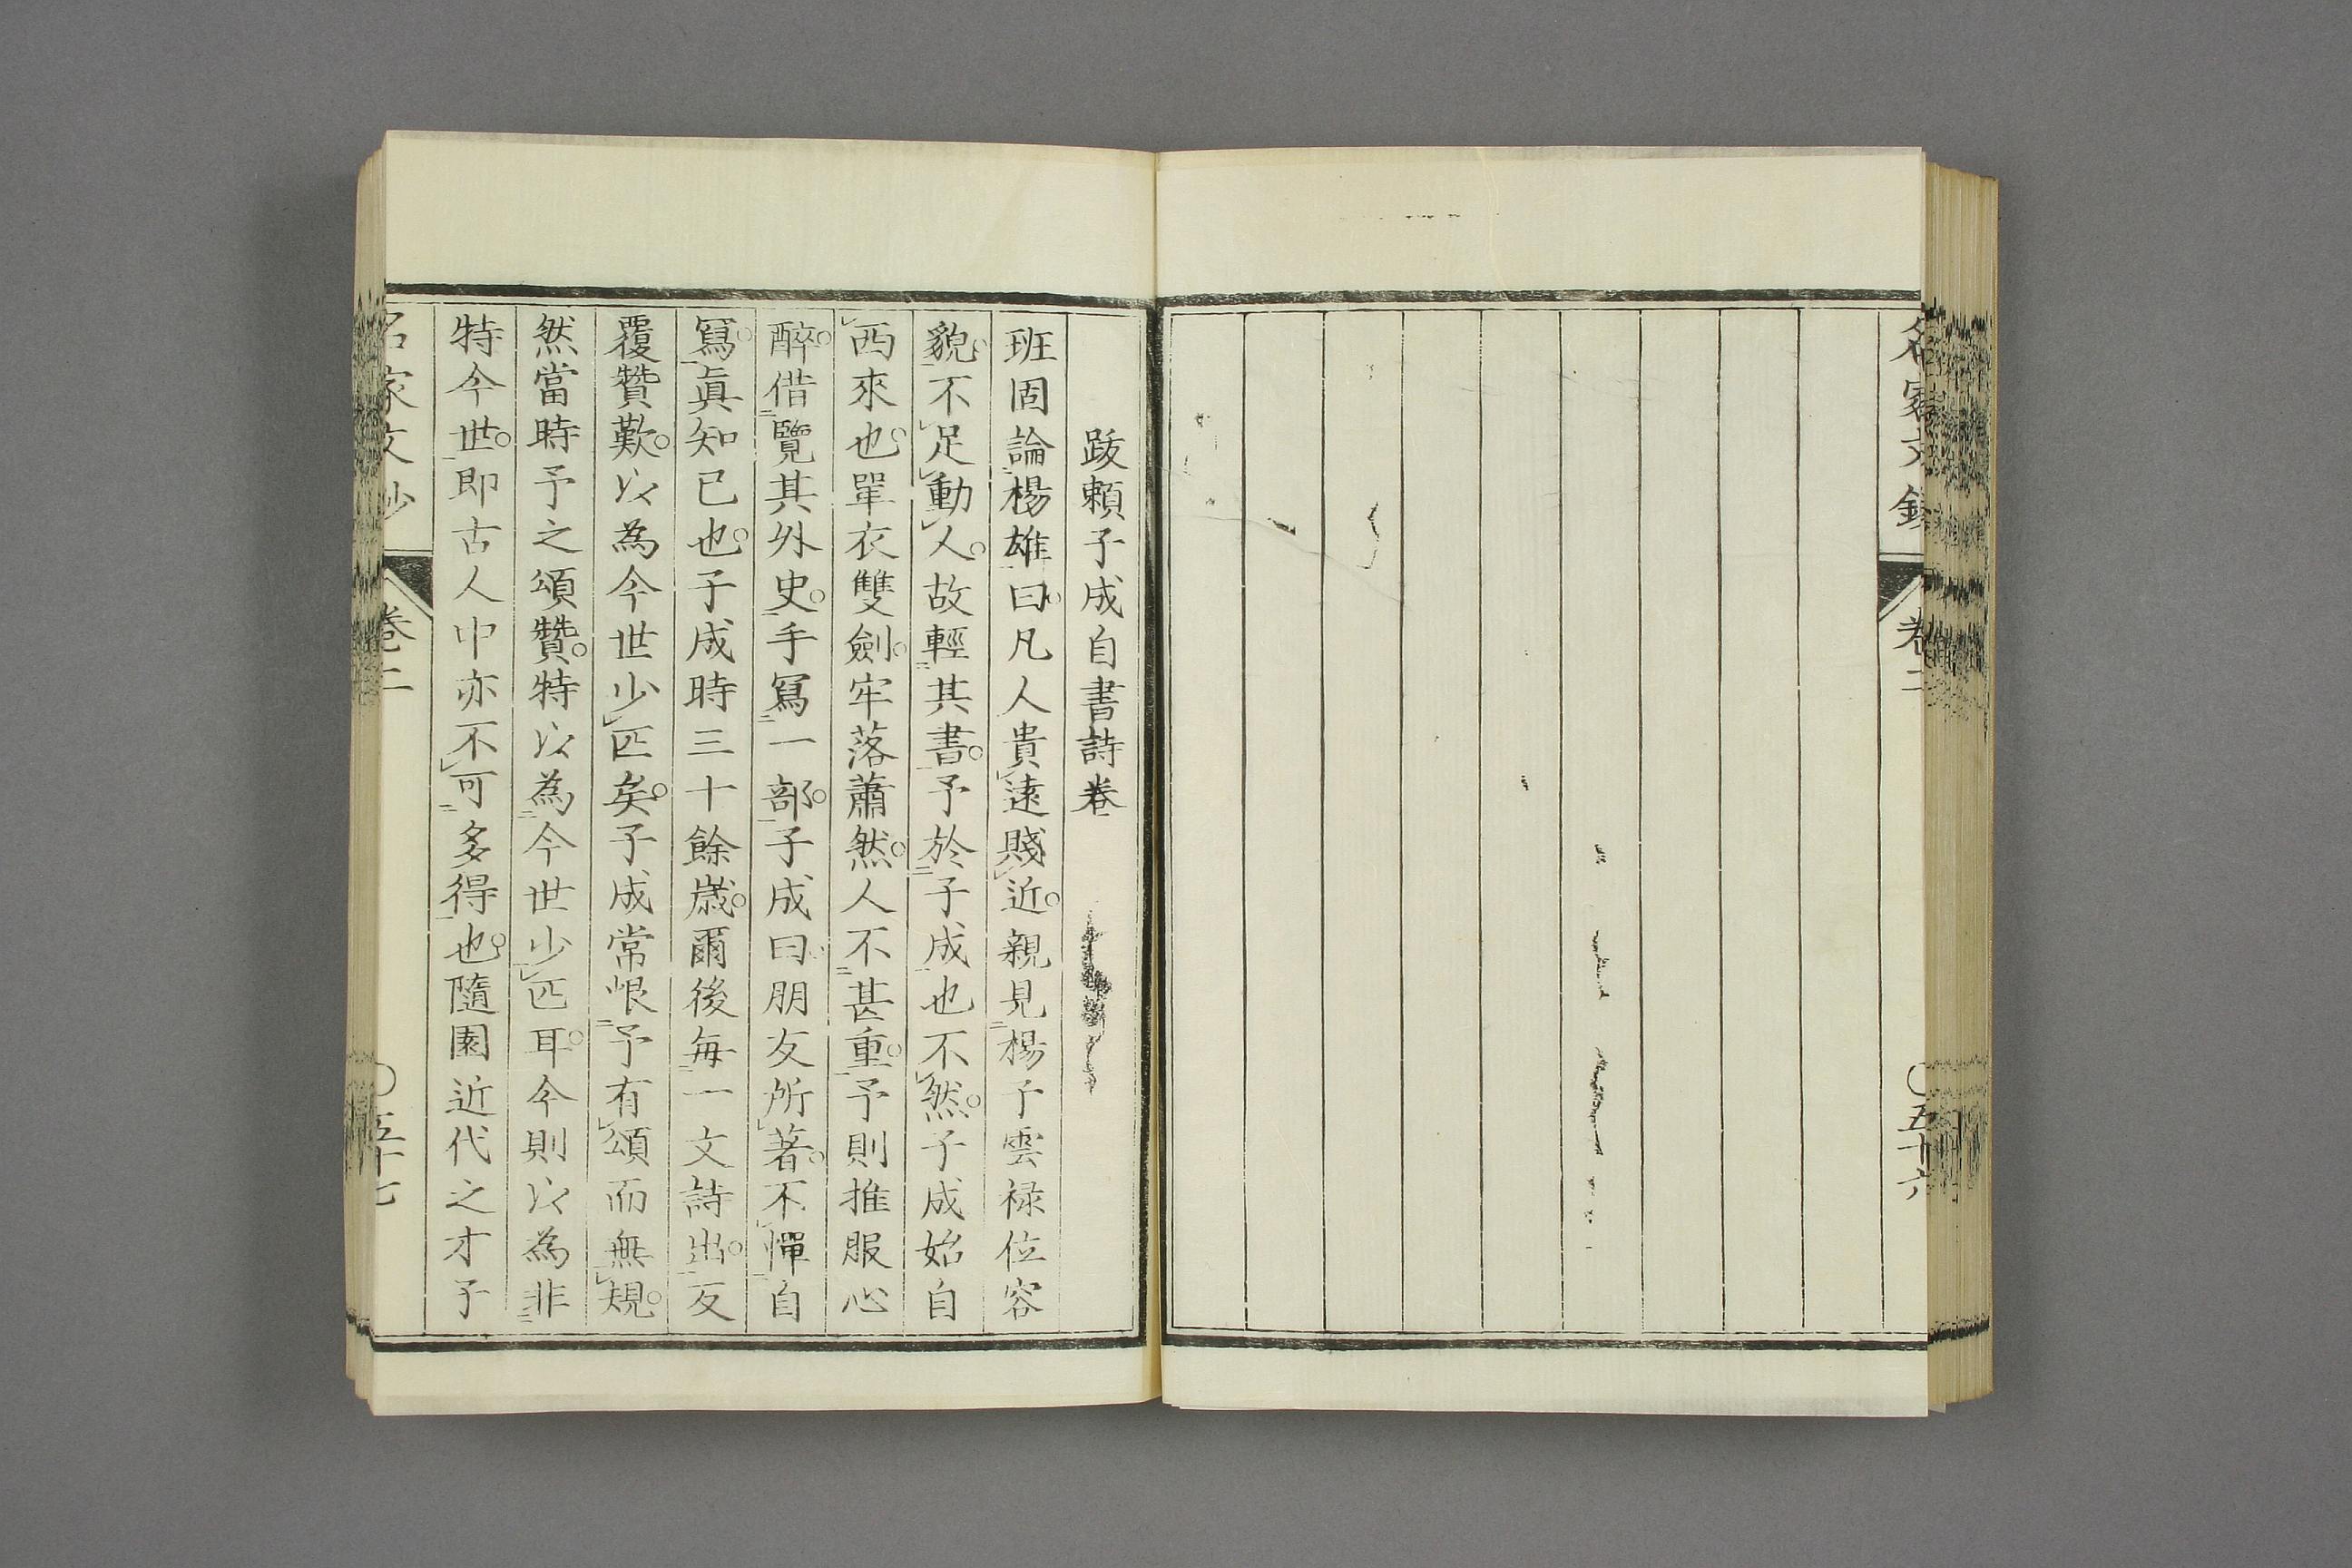 名家文鈔
卷二
〇五十六
跋賴子成自書詩卷
班固論楊雄曰凡人貴遠賤近親見楊子雲祿位容
貌不足動人故輕其書予於子成也不然子成始自
西來也單衣雙劍牢落蕭然人不甚重予則推服心
醉借覽其外史手寫一部子成曰朋友所著不憚自
寫眞知己也子成時三十餘歲爾後每一文詩出反
覆贊歎以為今世少匹矣子成常恨予有頌而無規
然當時予之頌贊特以為今世少匹耳今則以為非
特今世即古人中亦不可多得也隨園近代之才子
名家文鈔
卷二
〇五十七